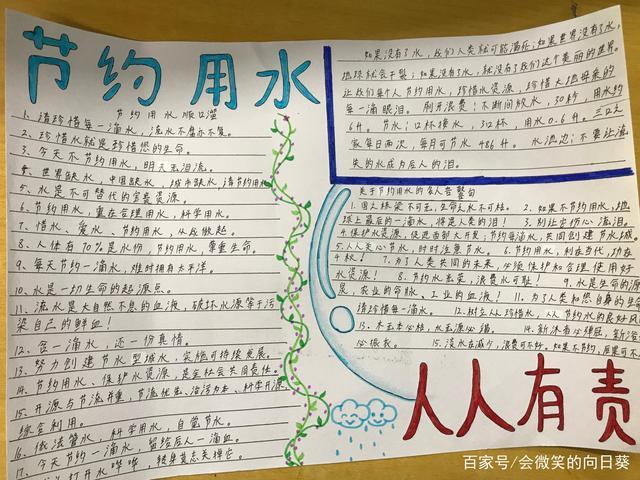 节约用水
节约用水顺口溜
1、请珍惜每一滴水,流水不腐亦不复。
2、珍惜水就是珍惜您的生命。
3、今天不节约用水,明天无泪流。
4、世界缺水,中国缺水,城市缺水,请节约用水
5、水是不可替代的宝贵资源。
6、节约用水,重在合理用水,科学用水。
7、惜水、爱水、节约用水,从我做起。
8、人体有70%是水份,节约用水,尊重生命。
9、每天节约一滴水,难时拥有太平洋。
10、水是一切生命的起源点。
11、流水是大自然不息的血液,破坏水源等于污
染自己的鲜血!
12、贪一滴水,还一份真情。
13、努力创建节水型城水,实施可持续发展。
14、节约用水、保护水资源,是全社会共同责任。
15、开源与节流并重,节流优先、治污为本、科学开源、
综合利用。
16、依法管水,科学用水,自觉节水。
17、今天节约一滴水,留给后人一滴血。
打开水哗哗,转身莫忘关掉它。
如果没有了水,我们人类就可能灭亡;如果世界没有了水,
地球就会干裂;如果没有了水,就没有了我们这个美丽的世界。
让我们每个人节约用水,珍惜水资源,珍惜大地母亲的
每一滴眼泪。刷牙浪费!不断间放水,30秒,用水约
6升。节水:口杯接水,3口杯,用水0.6升。三口之
家每日两次,每月可节水486升。水流边:不要让流
失的水成为后人的泪。
关于节约用水的名人告警句
1.国无栋梁不可无,生命无水不可枝。2.如果不节约用水,地
球上最后的一滴水,将是人类的泪!3.别让它伤心流泪。
4.保护水资源,促进西部大开发;节约每滴水,共同创建节水城。
5.人人关心节水,时时注意节水。6.节约用水,利在当代,功在
千秋!7.为了人类共同的未来,必须维护和合理使用好
水资源!8.节约水光荣,浪费水可耻!9.水是生命的源
泉,农业的命脉、工业的血液!11.为了人类和您自身的生命
请珍惜每一滴水。12.树立人人珍惜水,人人节约水的良好风
13.木无本必枝,水无源必竭。14.新沐者必弹冠,新浴
必振衣。15.淡水在减少,浪费可不好。如果不节约,后果可不
人人有责
百家号/会微笑的向日葵